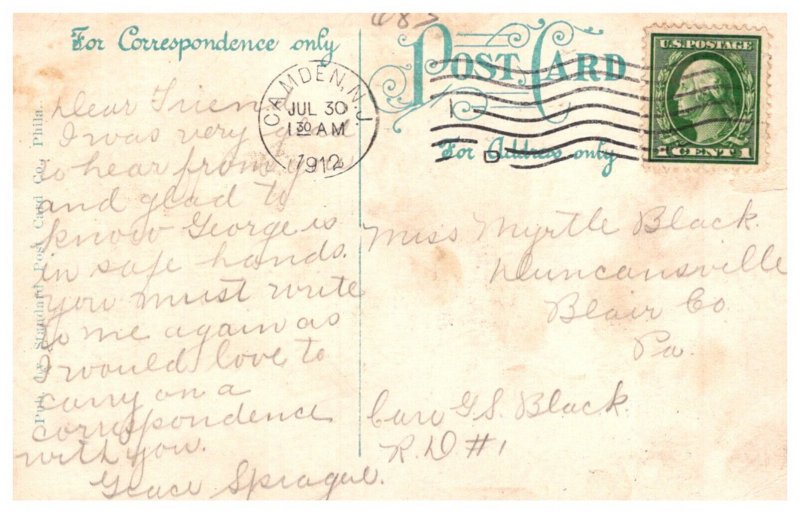 687
For Correspondence only
POST CARD
For Address only
U.S. POSTAGE
1 CENT 1
CAMDEN, N.J.
JUL 30
1 30 AM
1912
D
Pub. by Standard Post Card Co., Phila.
Dear Friend
I was very glad
to hear from you
and glad to
know George is
in safe hands.
You must write
to me again as
I would love to
carry on a
correspondence
with you.
Grace Sprague.
Miss Myrtle Black.
Duncansville
Blair Co.
Pa.
Care G.S. Black.
R.D #1